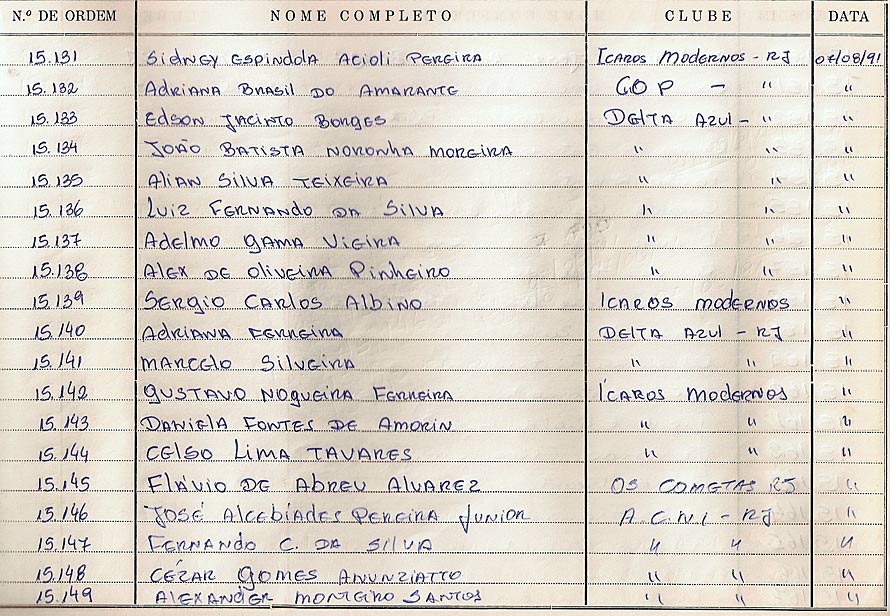 N.º DE ORDEM NOME COMPLETO CLUBE DATA
15.131 Sidney Espindola Acioli Pereira Icaros Modernos - RJ 07/08/91
15.132 Adriana Brasil do Amarante COP - "
15.133 Edson Jacinto Borges Delta Azul - " "
15.134 João Batista Noronha Moreira " " "
15.135 Alian Silva Teixeira " " "
15.136 Luiz Fernando da Silva " " "
15.137 Adelmo Gama Vieira " " "
15.138 Alex de Oliveira Pinheiro " " "
15.139 Sergio Carlos Albino Icaros Modernos "
15.140 Adriana Ferreira Delta Azul - RJ "
15.141 Marcelo Silveira " " "
15.142 Gustavo Nogueira Ferreira Ícaros Modernos "
15.143 Daniela Fontes de Amorin " " "
15.144 Celso Lima Tavares " " "
15.145 Flávio de Abreu Alvarez Os Cometas RJ "
15.146 José Alcebíades Pereira Junior - RJ "
15.147 Fernando C. da Silva " " "
15.148 Cézar Gomes Anunziatto " " "
15.149 Alexander Monteiro Santos " " "